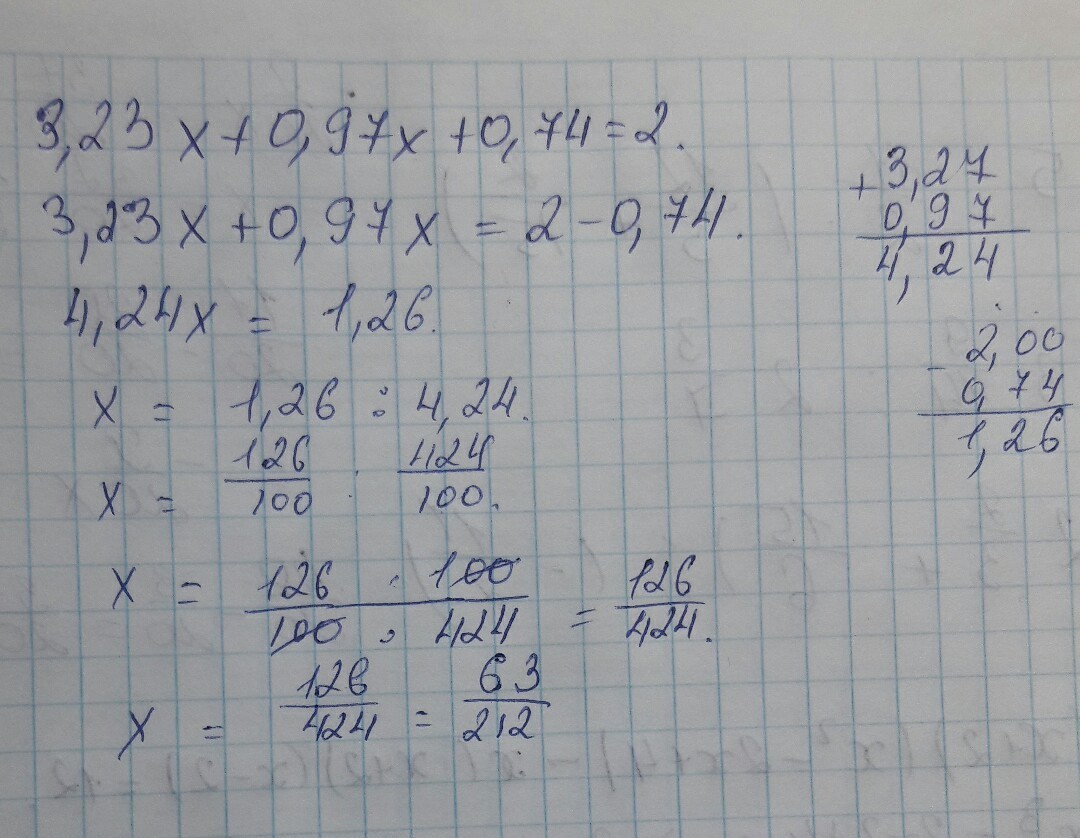 3,23x+0,97x+0,74=2.
3,23x+0,97x = 2-0,74.
4,24x = 1,26.
x = 1,26 : 4,24.
x = 126/100 : 424/100.
x = 126 · 100 / 100 · 424 = 126/424.
x = 126/424 = 63/212
+ 3,27
0,97
4,24
- 2,00
0,74
1,26